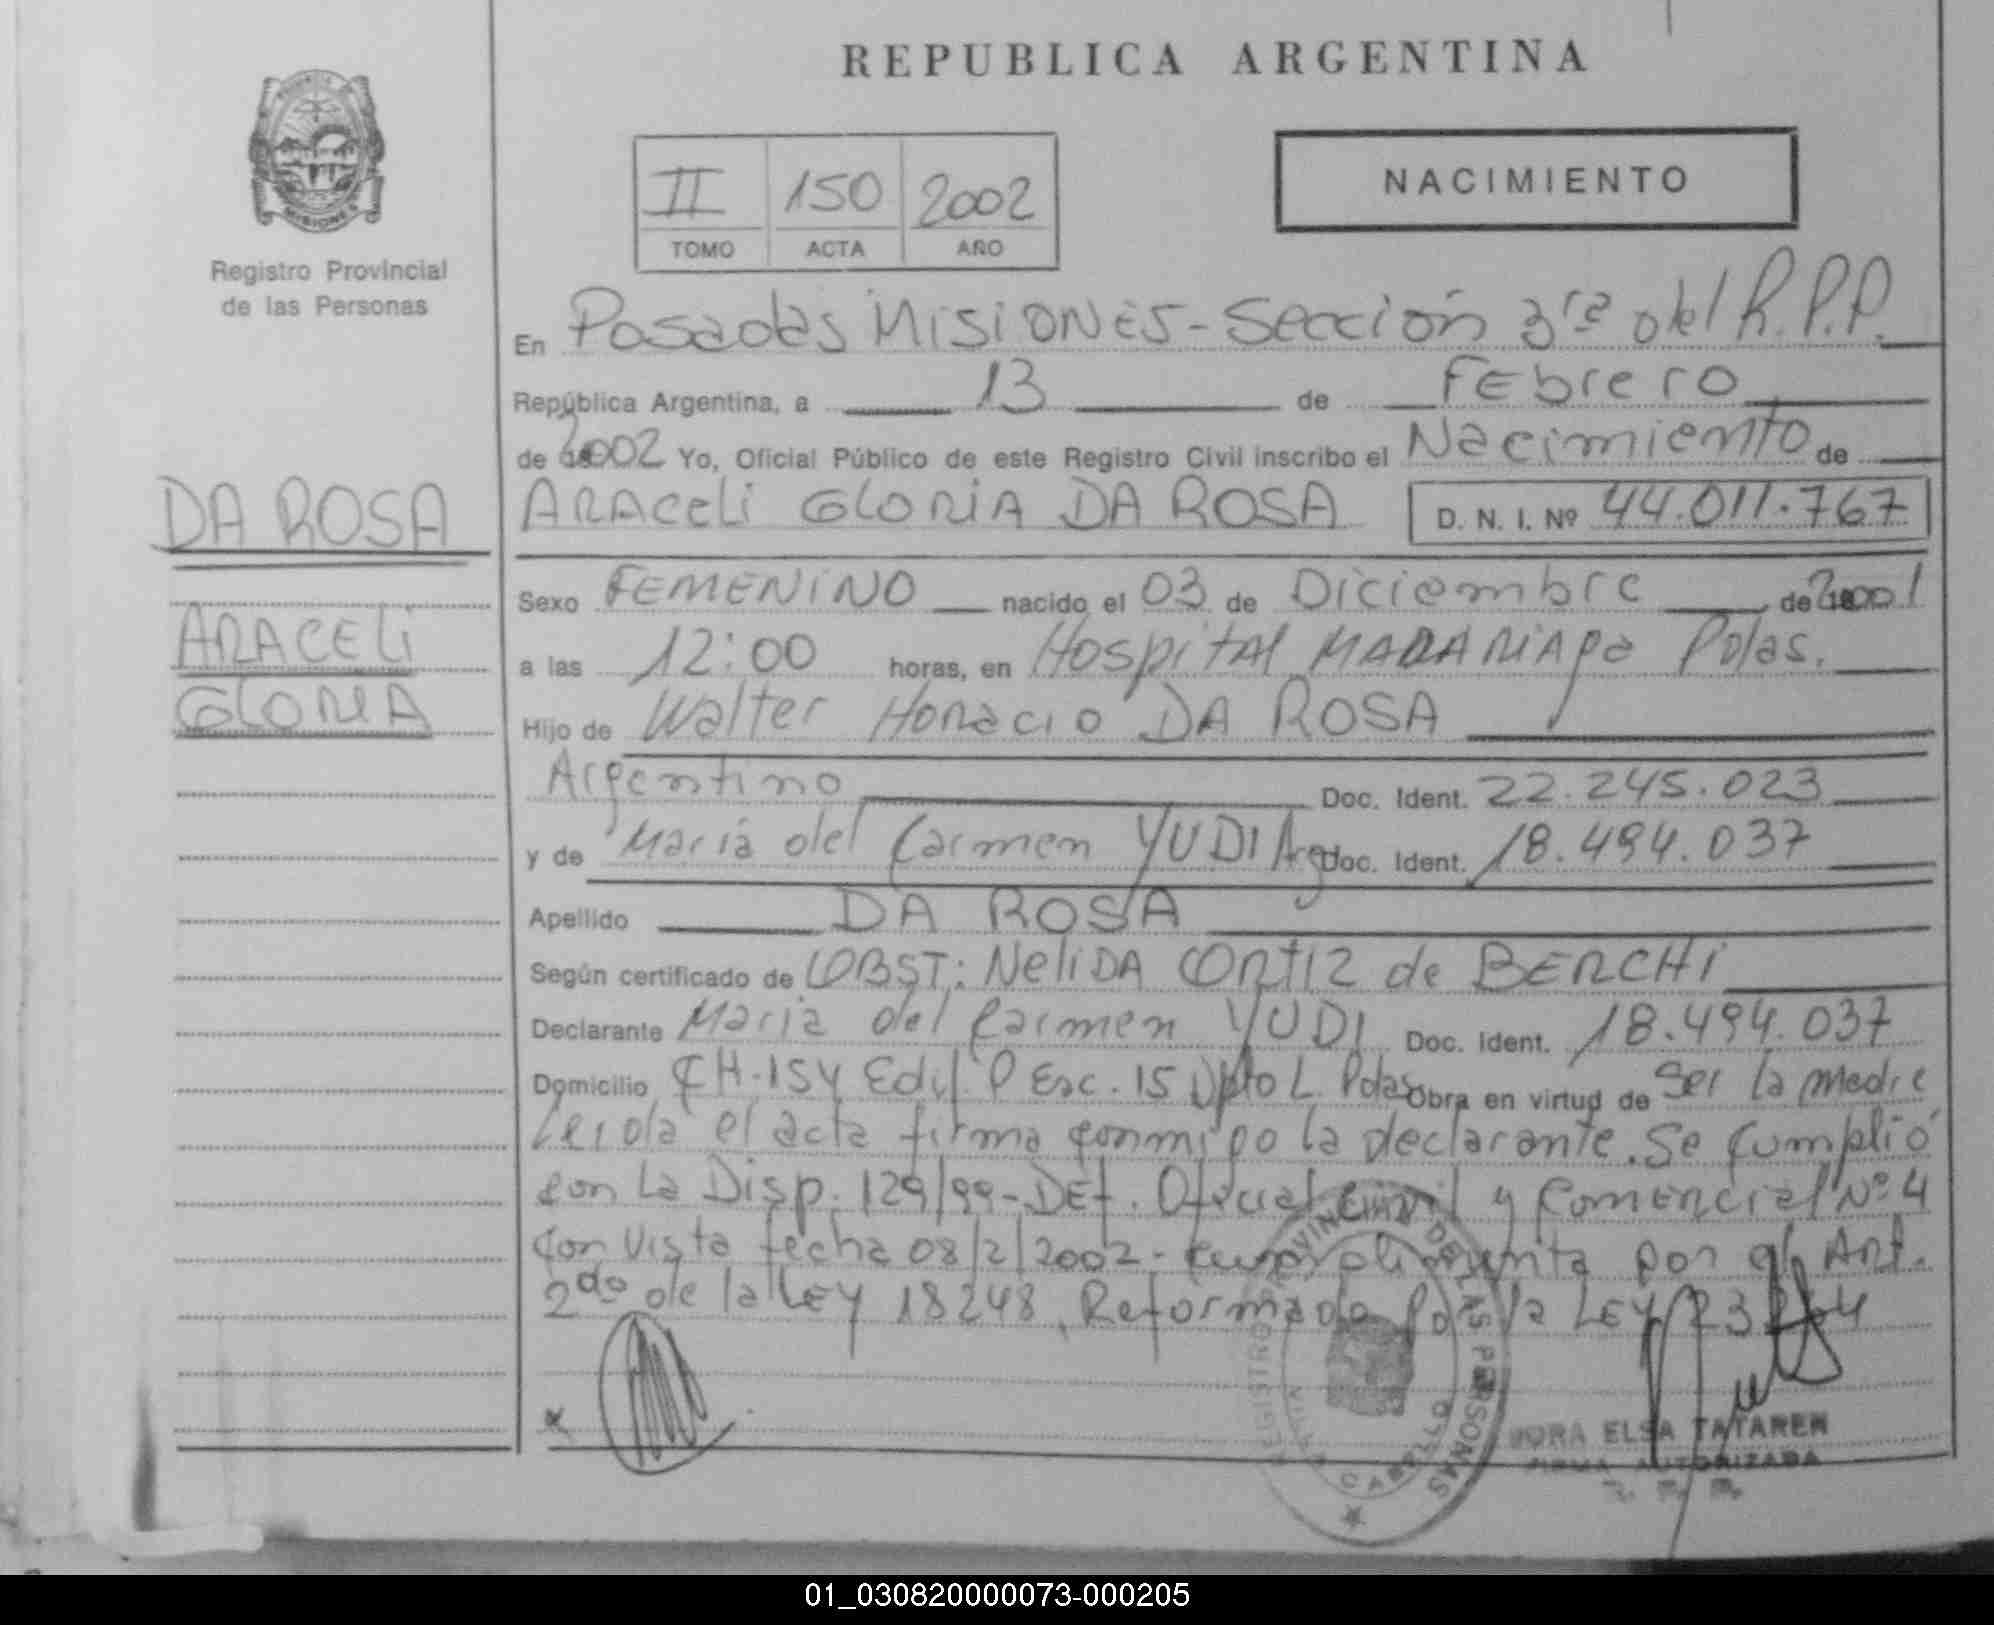 REPUBLICA ARGENTINA
PROVINCIA DE MISIONES
Registro Provincial
de las Personas
II 150 2002
TOMO ACTA AÑO
NACIMIENTO
En Posadas MISIONES - Sección 3ra del R.P.P.
República Argentina, a 13 de FEbrero
de 2002 Yo, Oficial Público de este Registro Civil inscribo el Nacimiento de
DA ROSA
ARACELI GLORIA DA ROSA D. N. I. Nº 44.011.767
Sexo FEMENINO nacido el 03 de Diciembre de 2001
ARACELI
a las 12:00 horas, en Hospital MADARIAGA Pdas.
GLORIA
Hijo de Walter Horacio DA ROSA
Argentino Doc. Ident. 22.245.023
y de Maria del Carmen YUDI Arg Doc. Ident. 18.494.037
Apellido DA ROSA
Según certificado de OBST: NELIDA ORTIZ de BERCHI
Declarante Maria del Carmen YUDI Doc. Ident. 18.494.037
Domicilio CH. 154 Edif. P Esc. 15 Dpto L. Pdas Obra en virtud de Ser la madre
Leida el acta firma conmigo la declarante. Se cumplió
con La Disp. 129/99 - DEf. Oficial Civil y Comercial Nº 4
con Vista fecha 08/2/2002 - por el Art.
2do de la LEY 18248, Reformado Por la LEY
REGISTRO PROVINCIAL DE LAS PERSONAS
ELSA TATAREN
FIRMA AUTORIZADA
01_030820000073-000205